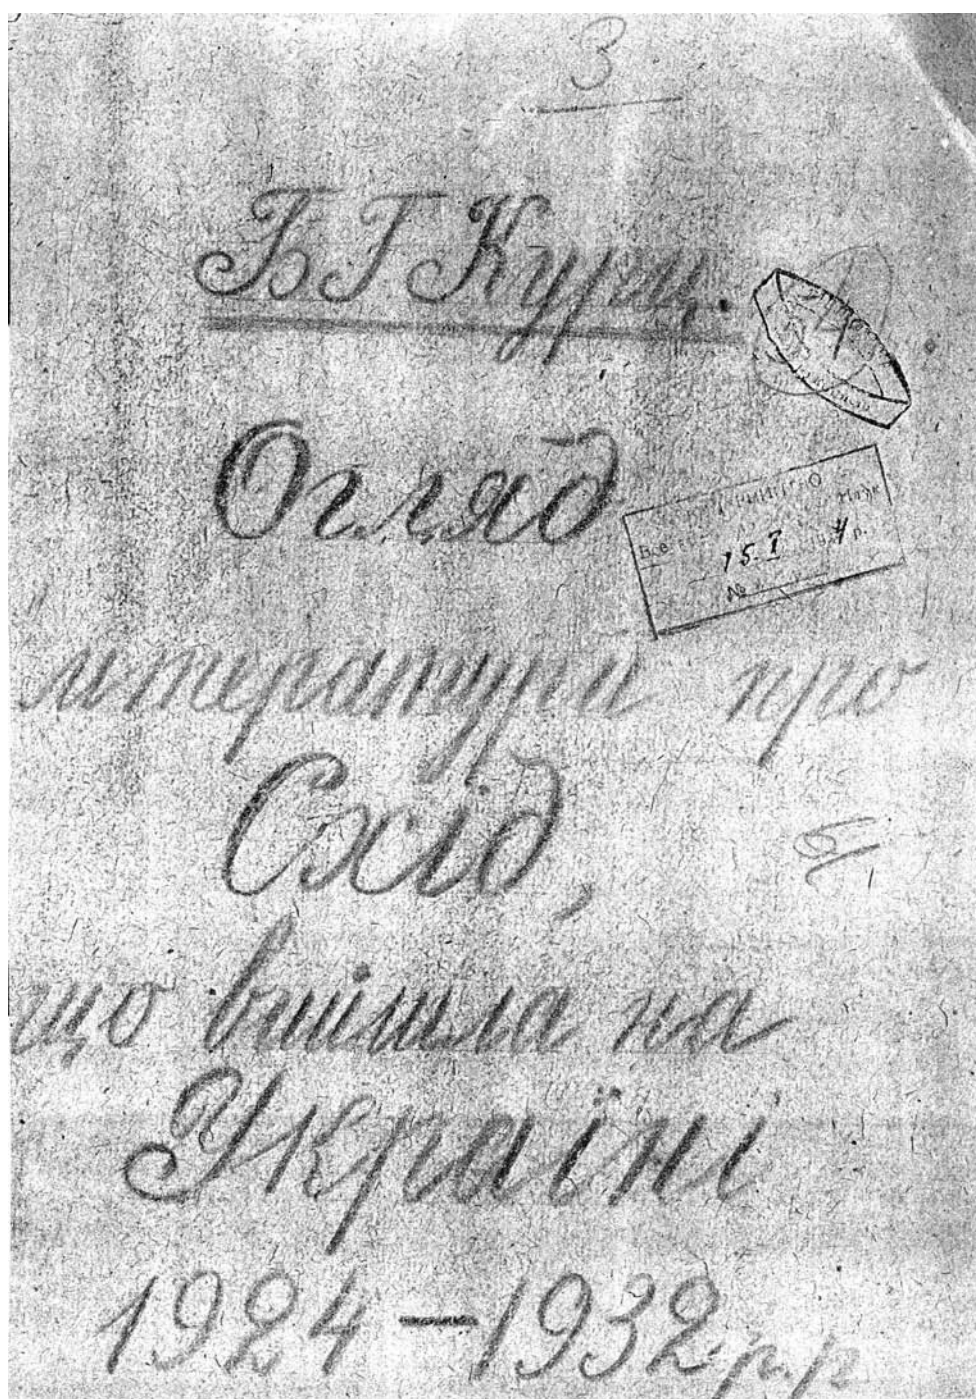 3
Б Г Курц.
Огляд
літератури про
Схід,
що вийшла на
Україні
1924 — 1932 р.р
15.I
№